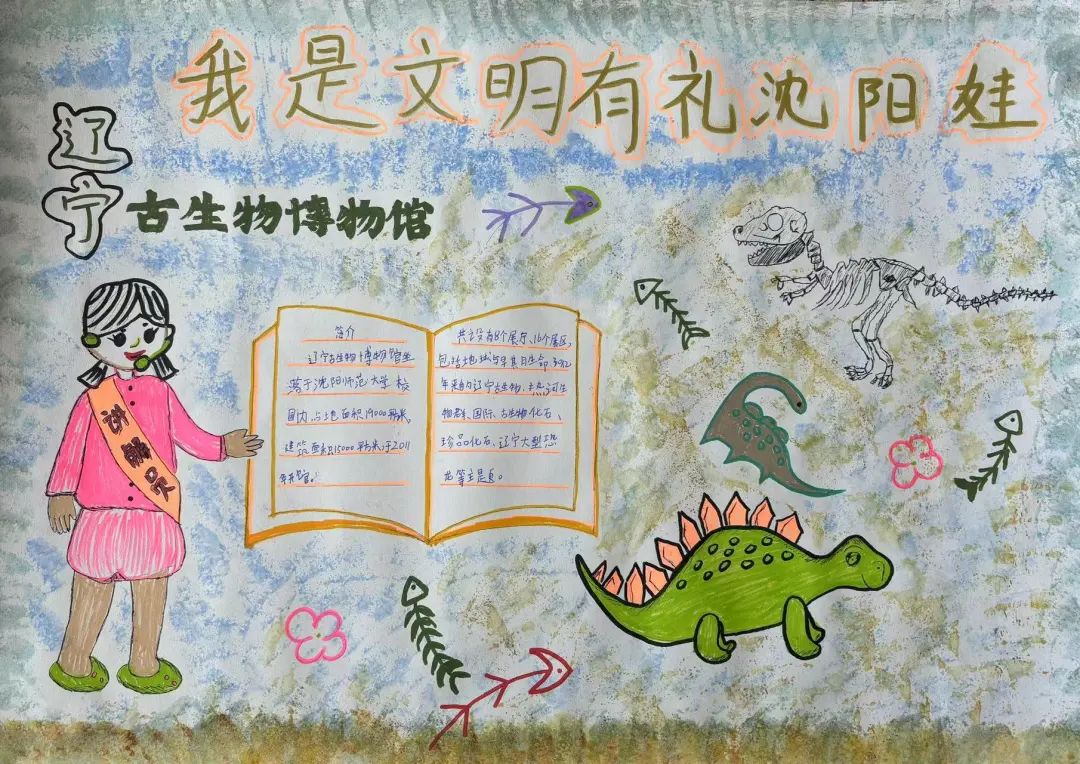 我是文明有礼沈阳娃
辽宁
古生物博物馆
讲解员
简介
辽宁古生物博物馆坐
落于沈阳师范大学校
园内,占地面积19000平方米,
建筑面积15000平方米于2011
年开馆。
共设有8个展厅、16个展区,
包括地球与早其月生命、30亿
年来的辽宁古生物、热河生
物群、国际古生物化石、
珍品化石、辽宁大型恐
龙等主是息。